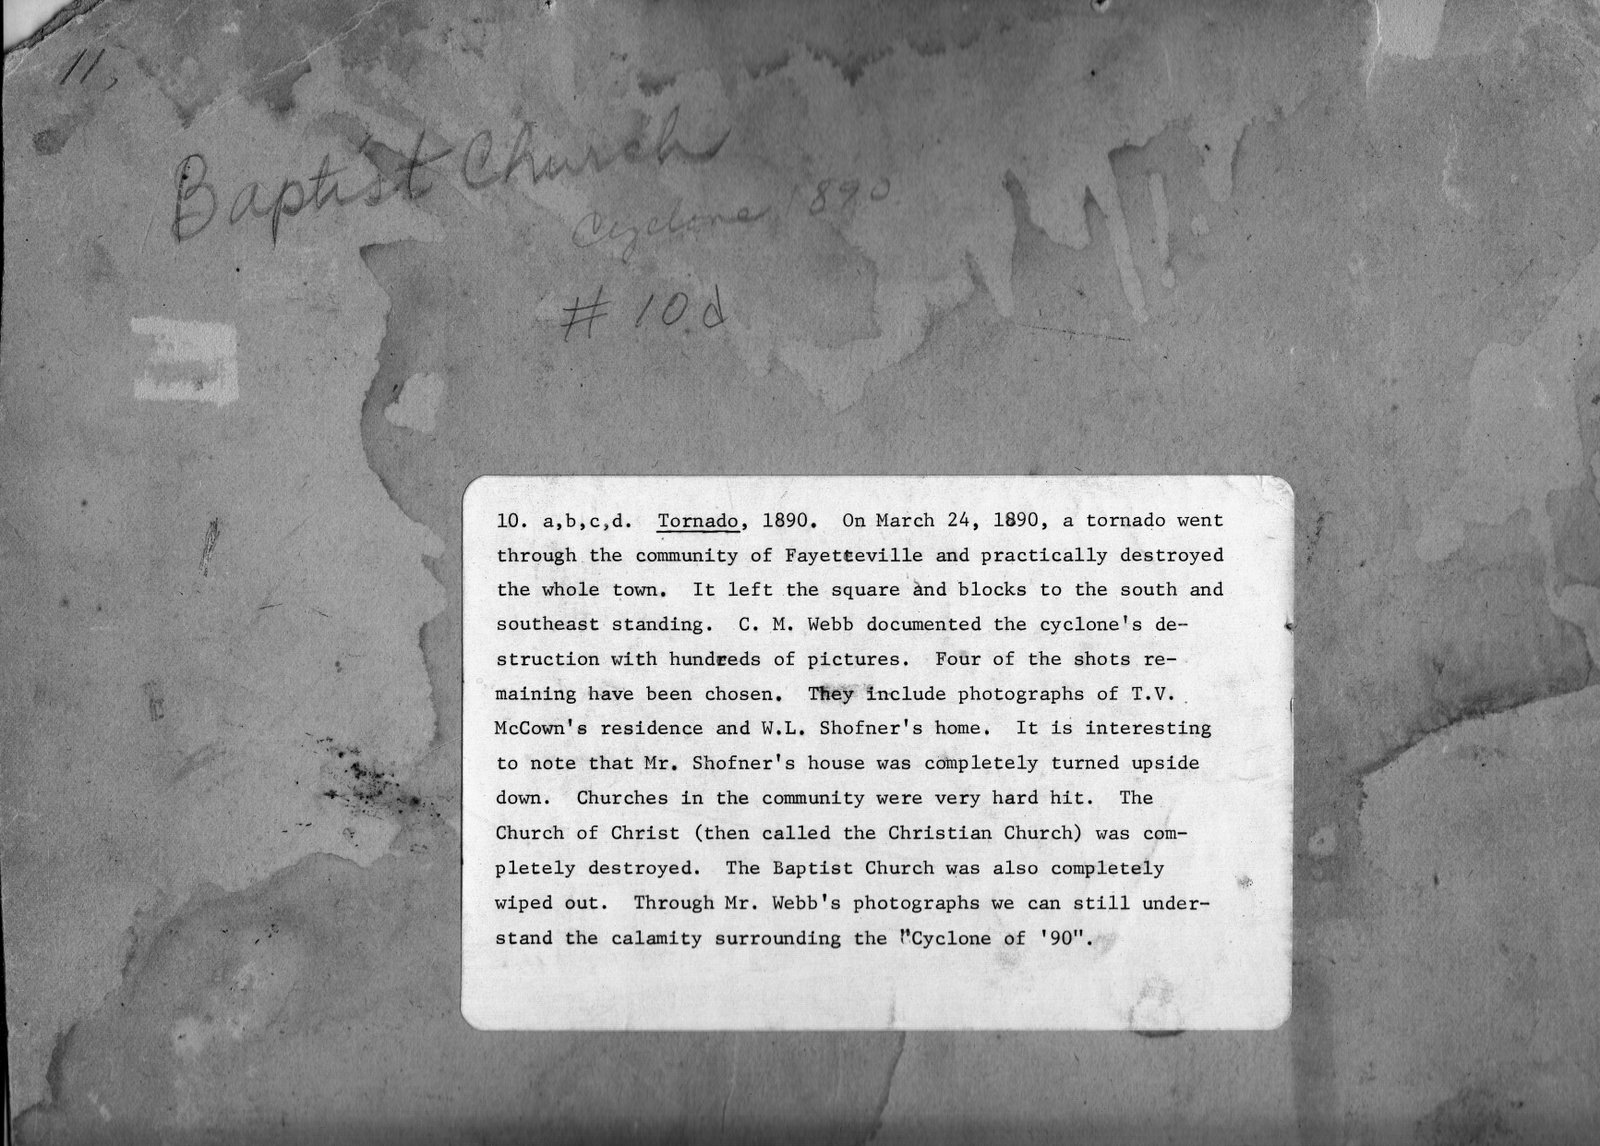 11,
Baptist Church
Cyclone 1890
# 10d
10. a,b,c,d. Tornado, 1890. On March 24, 1890, a tornado went
through the community of Fayetteville and practically destroyed
the whole town. It left the square and blocks to the south and
southeast standing. C. M. Webb documented the cyclone's de-
struction with hundreds of pictures. Four of the shots re-
maining have been chosen. They include photographs of T.V.
McCown's residence and W.L. Shofner's home. It is interesting
to note that Mr. Shofner's house was completely turned upside
down. Churches in the community were very hard hit. The
Church of Christ (then called the Christian Church) was com-
pletely destroyed. The Baptist Church was also completely
wiped out. Through Mr. Webb's photographs we can still under-
stand the calamity surrounding the "Cyclone of '90".